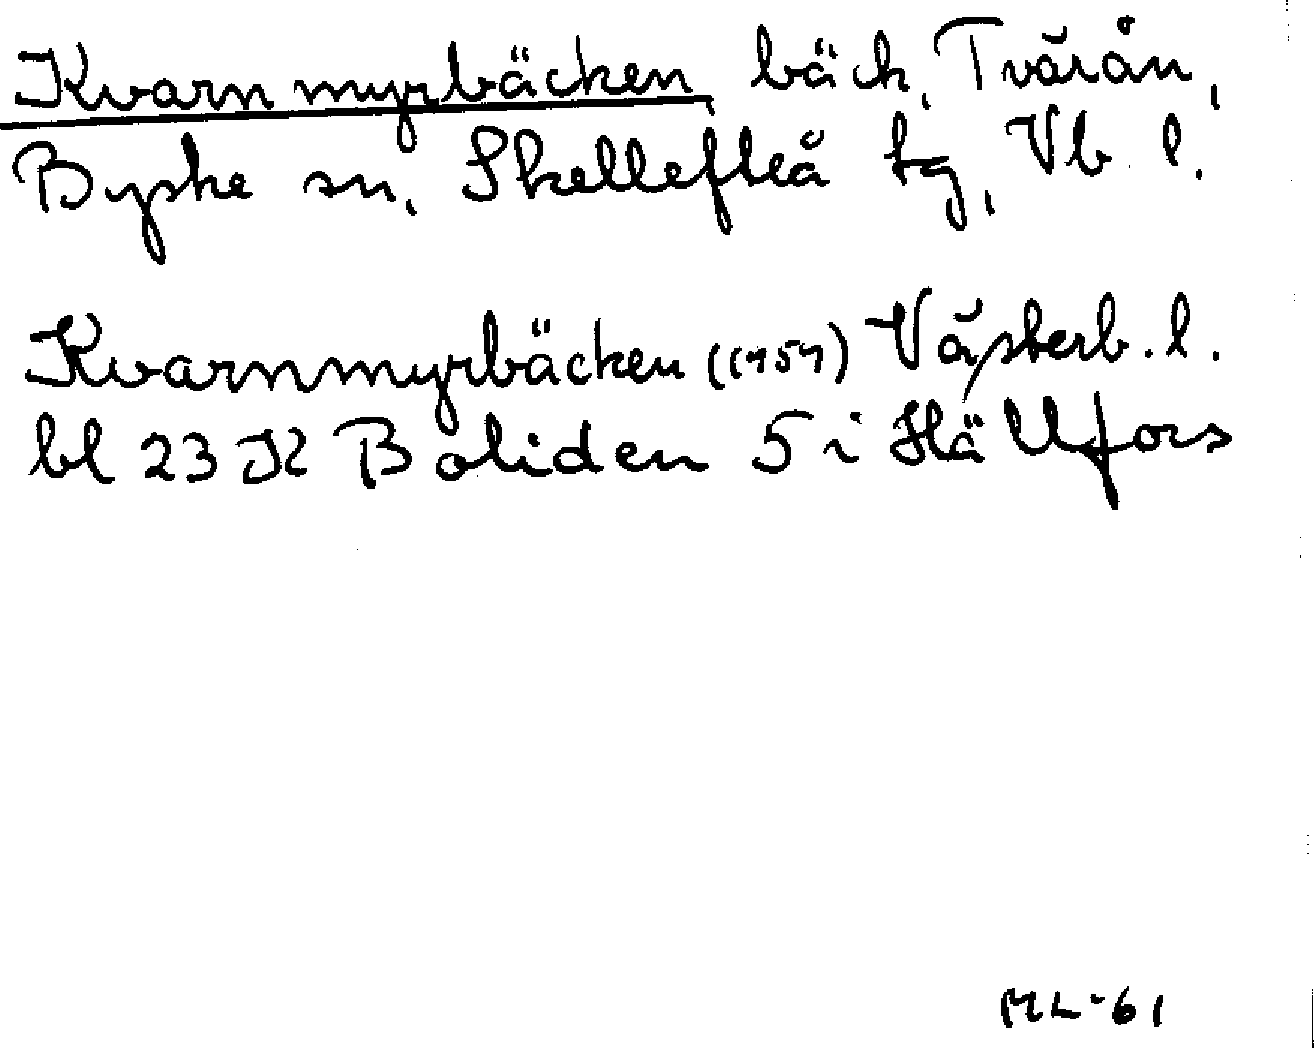 Kvarnmyrbäcken, bäck, Tvärån,
Byske sn, Skellefteå tg, Vb l.
Kvarnmyrbäcken Västerb. l.
bl 23 K Boliden 5 i Hällfors
ML-61